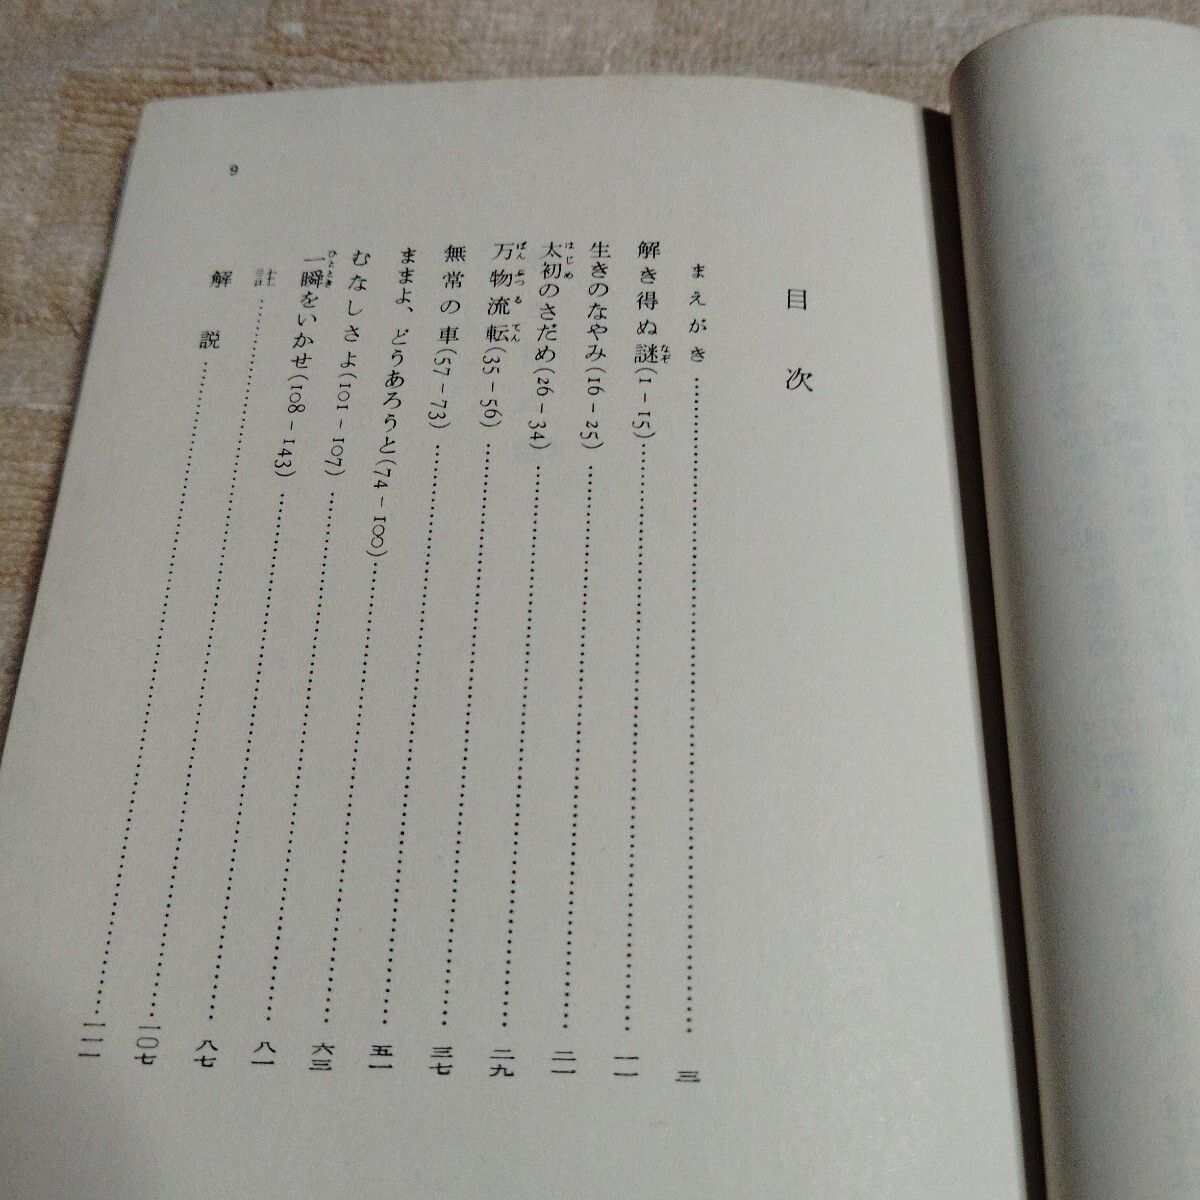 目次
まえがき……三
なぞ
解き得ぬ謎(1-15)……一一
生きのなやみ(16-25)……二一
はじめ
太初のさだめ(26-34)……二九
ばんぶつるてん
万物流転(35-56)……三七
無常の車(57-73)……五一
ままよ、どうあろうと(74-100)……六三
むなしさよ(101-107)……八一
ひととき
一瞬をいかせ(108-143)……八七
註……一〇七
解説……一一一
9